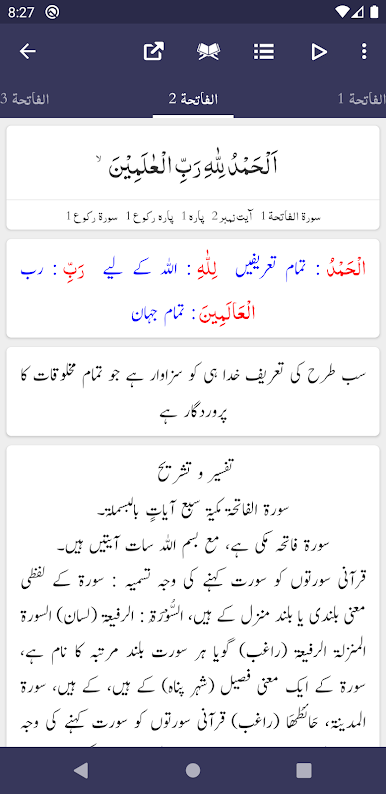 8:27
الفاتحة 1
الفاتحة 2
الفاتحة 3
اَلْحَمْدُ لِلّٰهِ رَبِّ الْعٰلَمِيْنَ ۙ
سورۃ الفاتحة 1 آیت نمبر 2 پارہ 1 پارہ رکوع 1 سورۃ رکوع 1
الْحَمْدُ : تمام تعریفیں لِلّٰهِ : اللہ کے لیے رَبِّ : رب
الْعَالَمِينَ : تمام جہان
سب طرح کی تعریف خدا ہی کو سزاوار ہے جو تمام مخلوقات کا
پروردگار ہے
تفسیر و تشریح
سورۃ الفاتحۃ مکیۃ سبع آیاتٍ بالبسملۃ۔
سورۃ فاتحہ مکی ہے، مع بسم اللہ سات آیتیں ہیں۔
قرآنی سورتوں کو سورت کہنے کی وجہ تسمیہ : سورۃ کے لفظی
معنی بلندی یا بلند منزل کے ہیں، السُّوْرَۃ : الرفیعۃ (لسان) السورۃ
المنزلۃ الرفیعۃ (راغب) گویا ہر سورت بلند مرتبہ کا نام ہے،
سورۃ کے ایک معنی فصیل (شہر پناہ) کے ہیں، کے ہیں، سورۃ
المدینۃ، حَائطُھَا (راغب) قرآنی سورتوں کو سورت کہنے کی وجہ